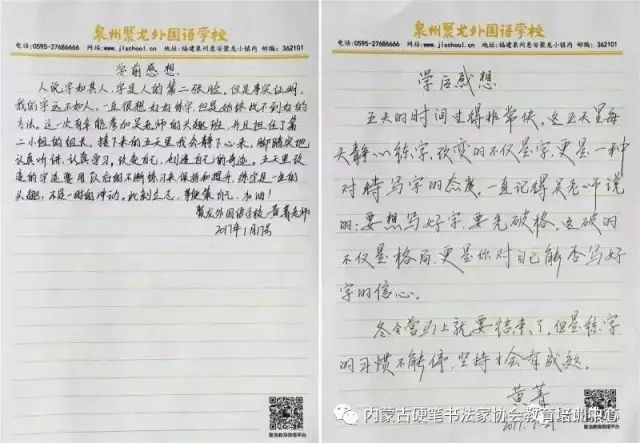 泉州聚龙外国语学校
电话:0595-27686666 网站:www.jlschool.cn 地址:福建泉州惠安聚龙小镇内 邮编:362101
学前感想
人说字如其人,字是人的第二张脸。但事实证明,
我的字远不如人,一直很想好好练字,但是始终找不到好的
方法。这一次有幸能参加吴老师的兴趣班,并且担任了第
二小组的组长。接下来的五天里我会静下心来,脚踏实地
认真听讲,认真学习,改变自己,创造自己的奇迹。五天里改
变的字迹要用队后的不断练习来保持和提升,练字是一生的
兴趣,不是一时的冲动。此刻立志,自己,加油!
聚龙外国语学校 黄菁老师
2017年1月17号
聚龙教育微信平台
泉州聚龙外国语学校
电话:0595-27686666 网站:www.jlschool.cn 地址:福建泉州惠安聚龙小镇内 邮编:362101
学后感想
五天的时间过得非常快。这五天里每
天静心练字,改变的不仅是字,更是一种
对待写字的态度。一直记得吴老师说
的:要想写好字,要先破格。这破的
不仅是格局,更是你对自己能否写好
字的信心。
冬令营马上就要结束了,但是练字
的习惯不能停,坚持才会有成效。
黄菁
2017.1.21
内蒙古硬笔书法家协会教育培训中心